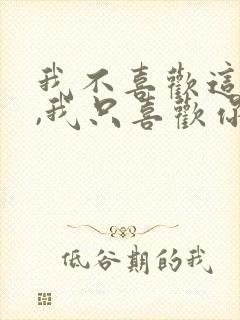 我不喜歡這
,我只喜歡你
低谷期的我